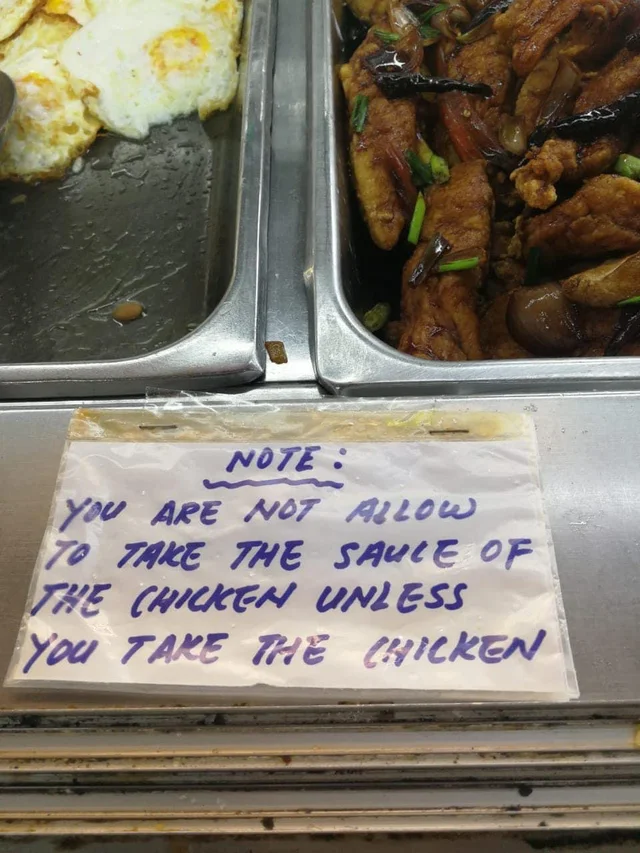 NOTE:
YOU ARE NOT ALLOW
TO TAKE THE SAUCE OF
THE CHICKEN UNLESS
YOU TAKE THE CHICKEN